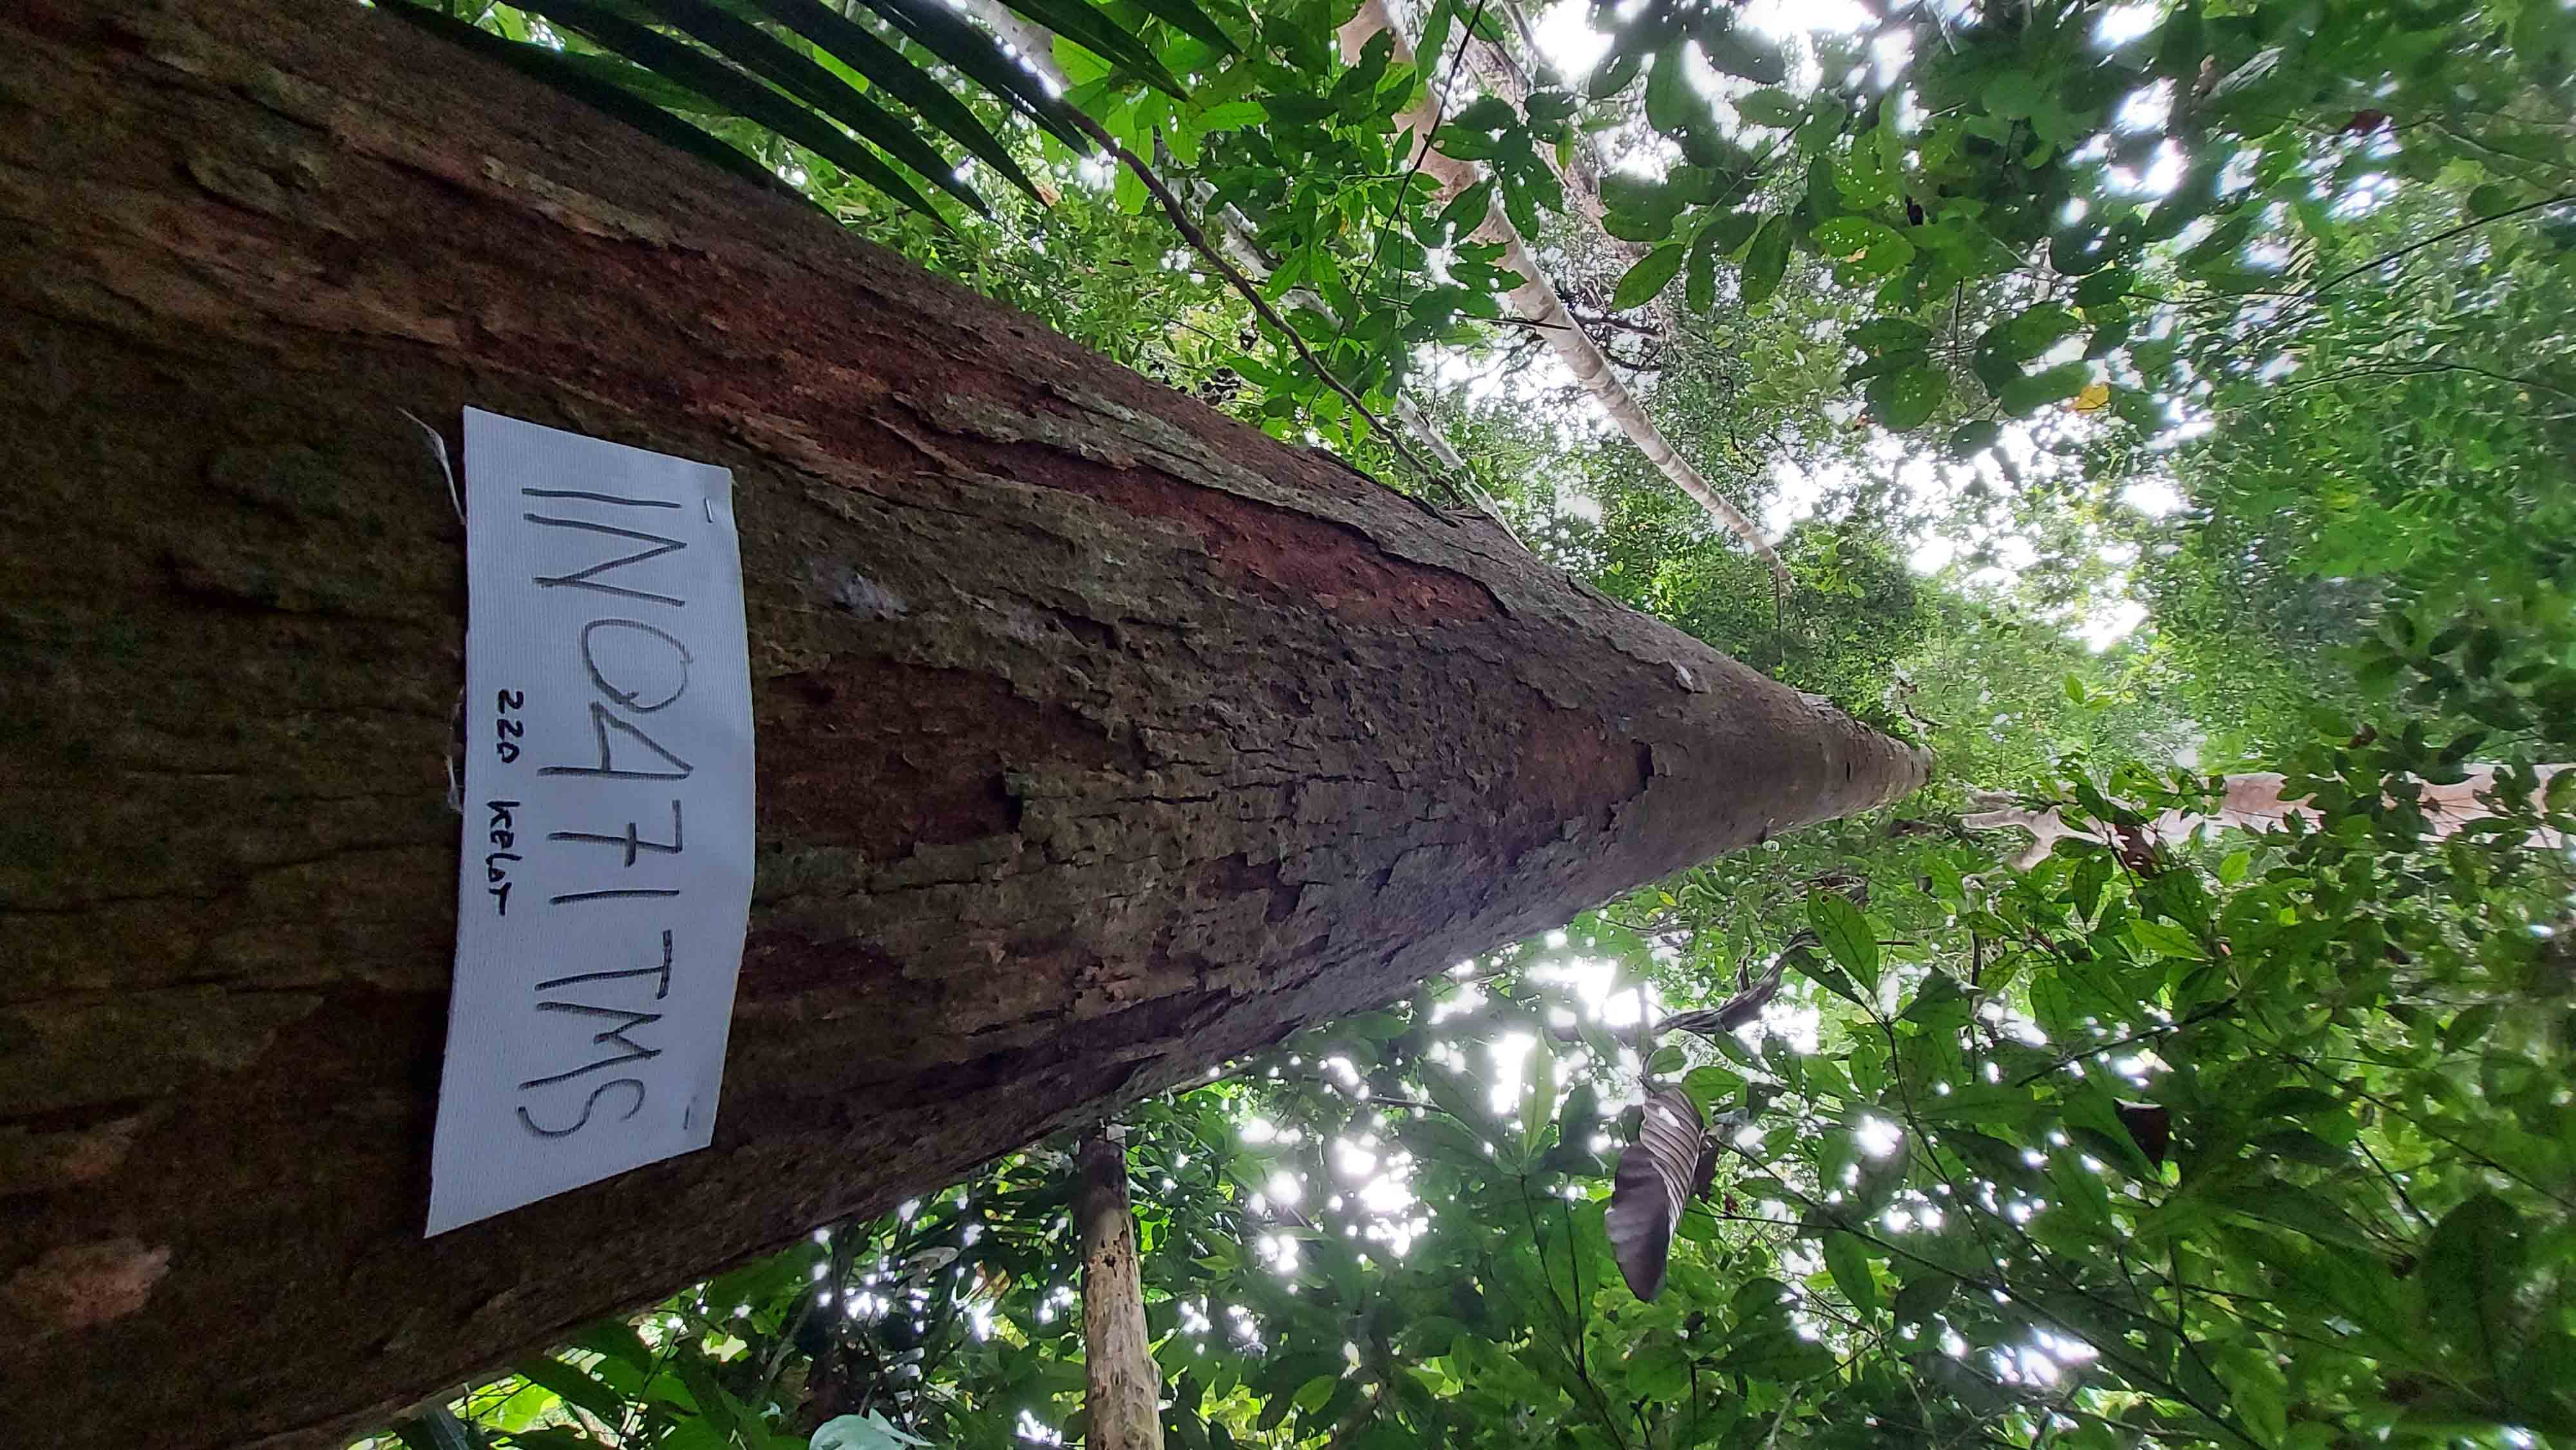 IN0471TMS
220 Kelat